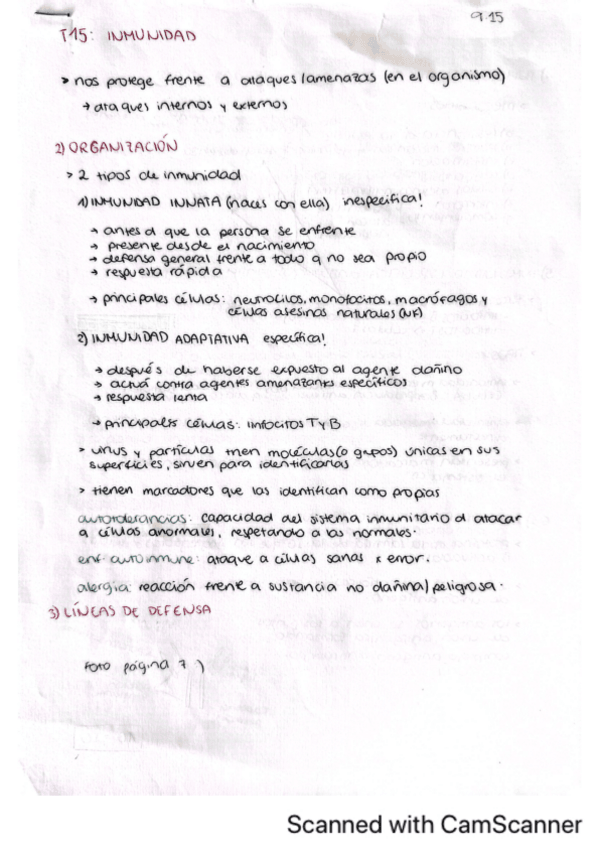 9.15
T15: INMUNIDAD
> nos protege frente a ataques/amenazas (en el organismo)
→ ataques internos y externos
2) ORGANIZACIÓN
> 2 tipos de inmunidad
1) INMUNIDAD INNATA (naces con ella) inespecífica!
→ antes d que la persona se enfrente
→ presente desde el nacimiento
→ defensa general frente a todo q no sea propio
→ respuesta rápida
→ principales células: neutrocilos, monofocitos, macrófagos y
células asesinas naturales (NK)
2) INMUNIDAD ADAPTATIVA específica!
→ después de haberse expuesto al agente dañino
→ actuá contra agentes amenazantes específicos
→ respuesta lenta
→ principales células: linfocitos T y B
> virus y partículas tnen moléculas (o grupos) únicas en sus
superficies, sirven para identificarlas
> tienen marcadores que las identifican como propias
autotolerancias: capacidad del sistema inmunitario d atacar
a células anormales, respetando a las normales.
enf. autoinmune: ataque a células sanas x error.
alergia: reacción frente a sustancia no dañina/peligrosa.
3) LÍNEAS DE DEFENSA
Foto página 7 )
Scanned with CamScanner